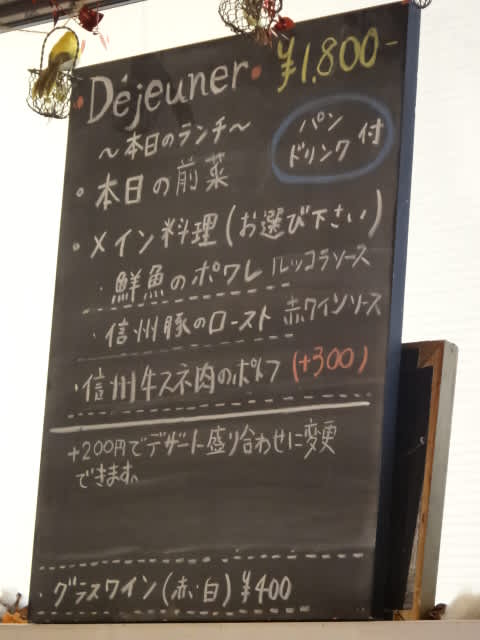 Déjeuner ¥1,800-
～本日のランチ～
パン
ドリンク 付
・本日の前菜
・メイン料理(お選び下さい)
・鮮魚のポワレ ルッコラソース
・信州豚のロースト 赤ワインソース
・信州牛スネ肉のポトフ (+300)
+200円でデザート盛り合わせに変更
できます。
・グラスワイン(赤・白) ¥400